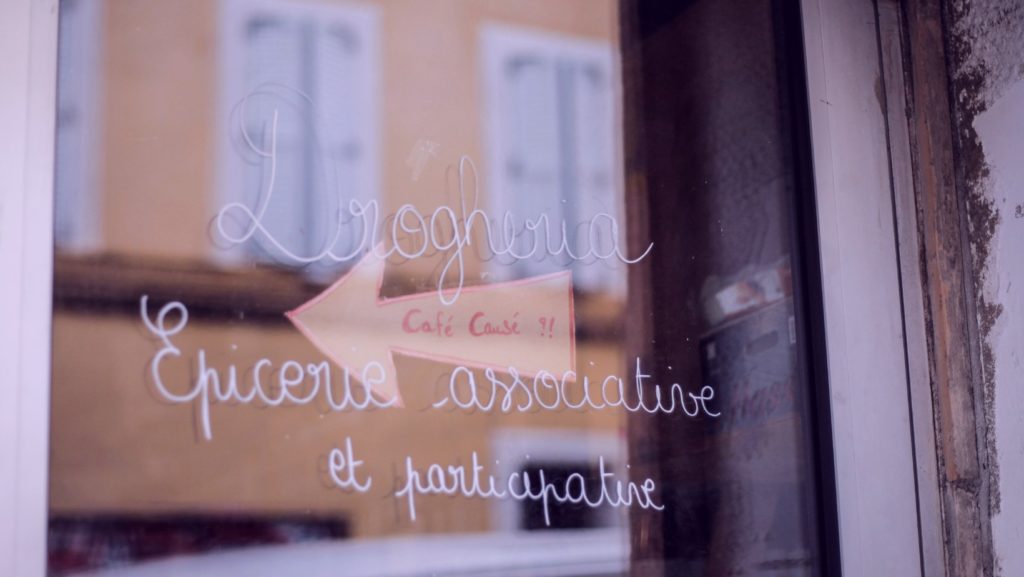 Drogheria
Café Causé ?!
Epicerie associative
et participative